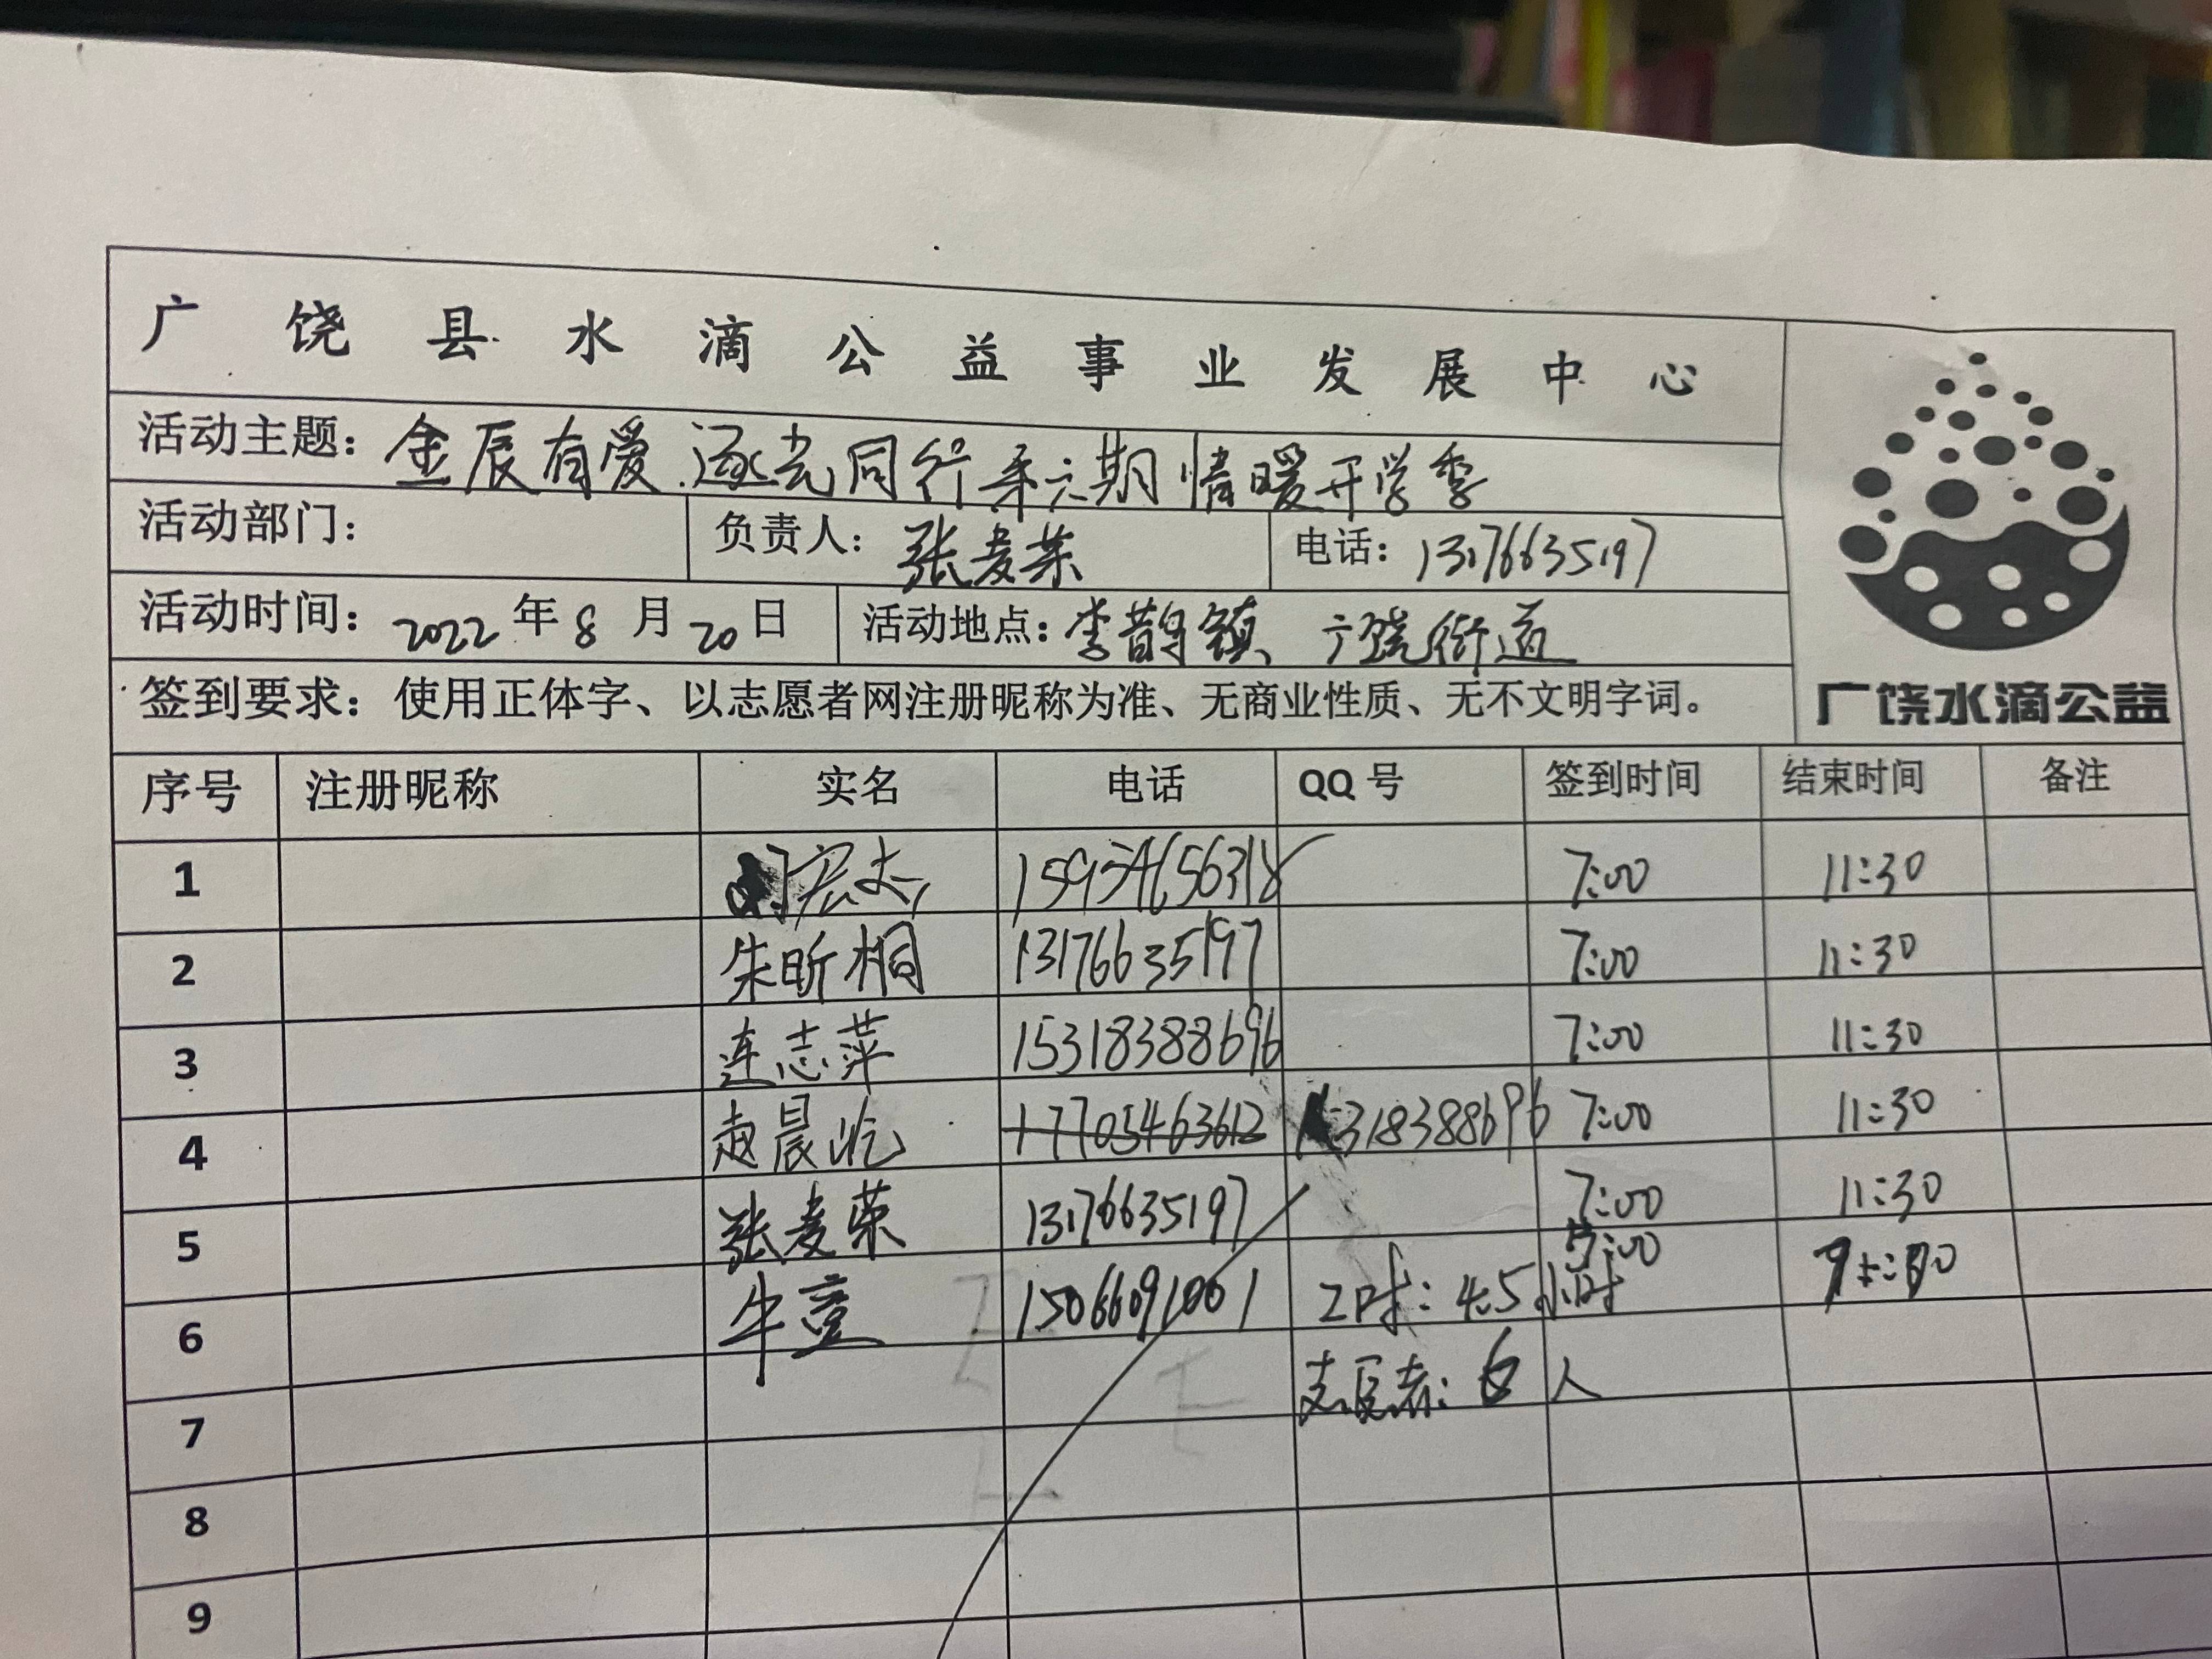 广饶县水滴公益事业发展中心
活动主题：金辰有爱.逐光同行第六期情暖开学季
活动部门：
负责人：张麦荣
电话：13176635197
活动时间：2022年8月20日
活动地点：李鹊镇、广饶街道
签到要求：使用正体字、以志愿者网注册昵称为准、无商业性质、无不文明字词。
广饶水滴公益
序号 注册昵称 实名 电话 QQ号 签到时间 结束时间 备注
1 宏杰 15954656318 7:00 11:30
2 朱昕桐 13176635197 7:00 11:30
3 连志萍 15318388696 7:00 11:30
4 赵晨屹 17705463612 15318388696 7:00 11:30
5 张麦荣 13176635197 7:00 11:30
6 牛童 15066091001 7:00
工时：4.5小时
7 志愿者：6人
8
9